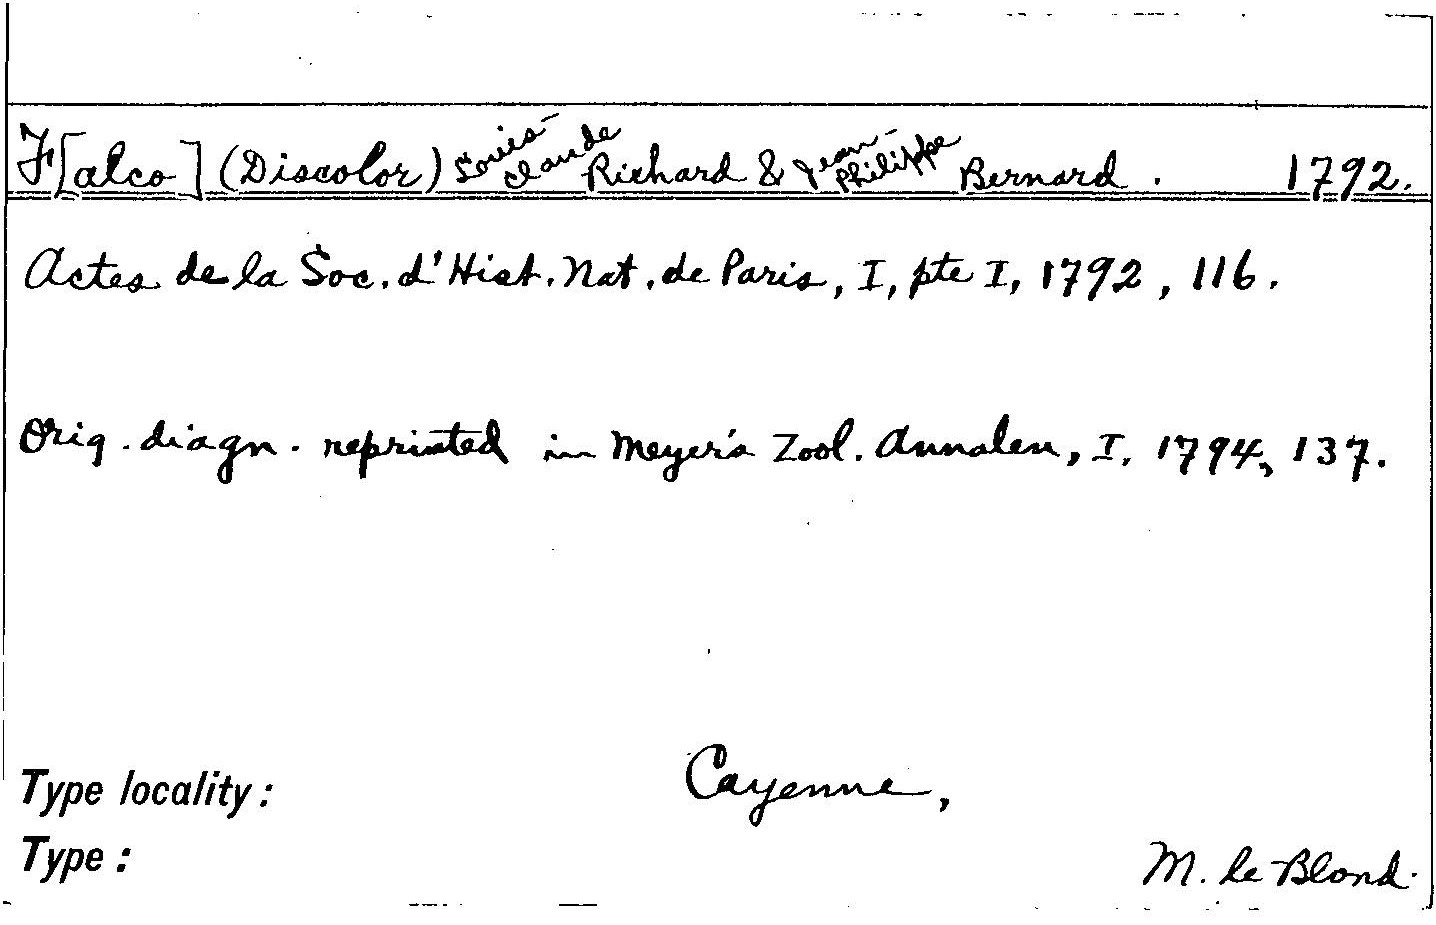 F[alco] (Discolor) Louis-Claude Richard & Jean-Philippe Bernard. 1792.
Actes de la Soc. d'Hist. Nat. de Paris, I, pte I, 1792, 116.
Orig. diagn. reprinted in Meyer's Zool. Annalen, I, 1794, 137.
Type locality: Cayenne,
Type:
M. le Blond.